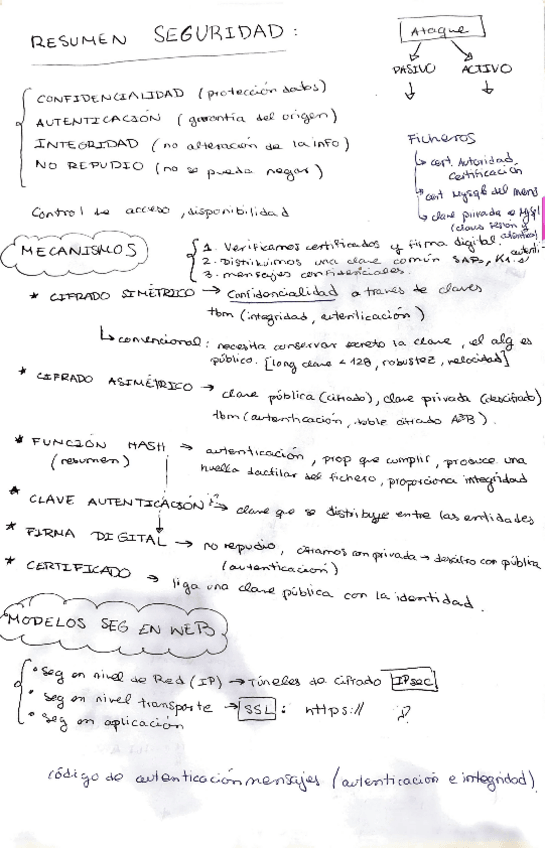 RESUMEN SEGURIDAD:
Ataque
PASIVO ACTIVO
CONFIDENCIALIDAD (protección datos)
AUTENTICACIÓN (garantía del origen)
INTEGRIDAD (no alteración de la info)
NO REPUDIO (no se pueda negar)
Control de acceso, disponibilidad
Ficheros
cert. Autoridad
Certificación
cert Mysqb del mens
clave privada
(claves sesión y
MECANISMOS
1. Verificamos certificados y firma digital.
2. Distribuimos una clave común
3. mensajes confidenciales.
* CIFRADO SIMÉTRICO → Confidencialidad a traves de claves
tbm (integridad, autenticación)
↳ convencional: necesita conservar secreto la clave, el alg es
público. [long clave < 128, robustez, velocidad]
* CIFRADO ASIMÉTRICO → clave pública (cifrado), clave privada (descifrado)
tbm (autenticación, doble cifrado A→B).
* FUNCIÓN HASH → autenticación, prop que cumplir, produce una
(resumen) huella dactilar del fichero, proporciona integridad
* CLAVE AUTENTICACIÓN → clave que se distribuye entre las entidades
* FIRMA DIGITAL → no repudio, ciframos con privada → descifro con pública
(autenticación)
* CERTIFICADO → liga una clave pública con la identidad.
MODELOS SEG EN WEB
• seg en nivel de Red (IP) → Túneles de cifrado IPsec
• seg en nivel transporte → SSL: https://
• seg en aplicación
código de autenticación mensajes (autenticación e integridad)